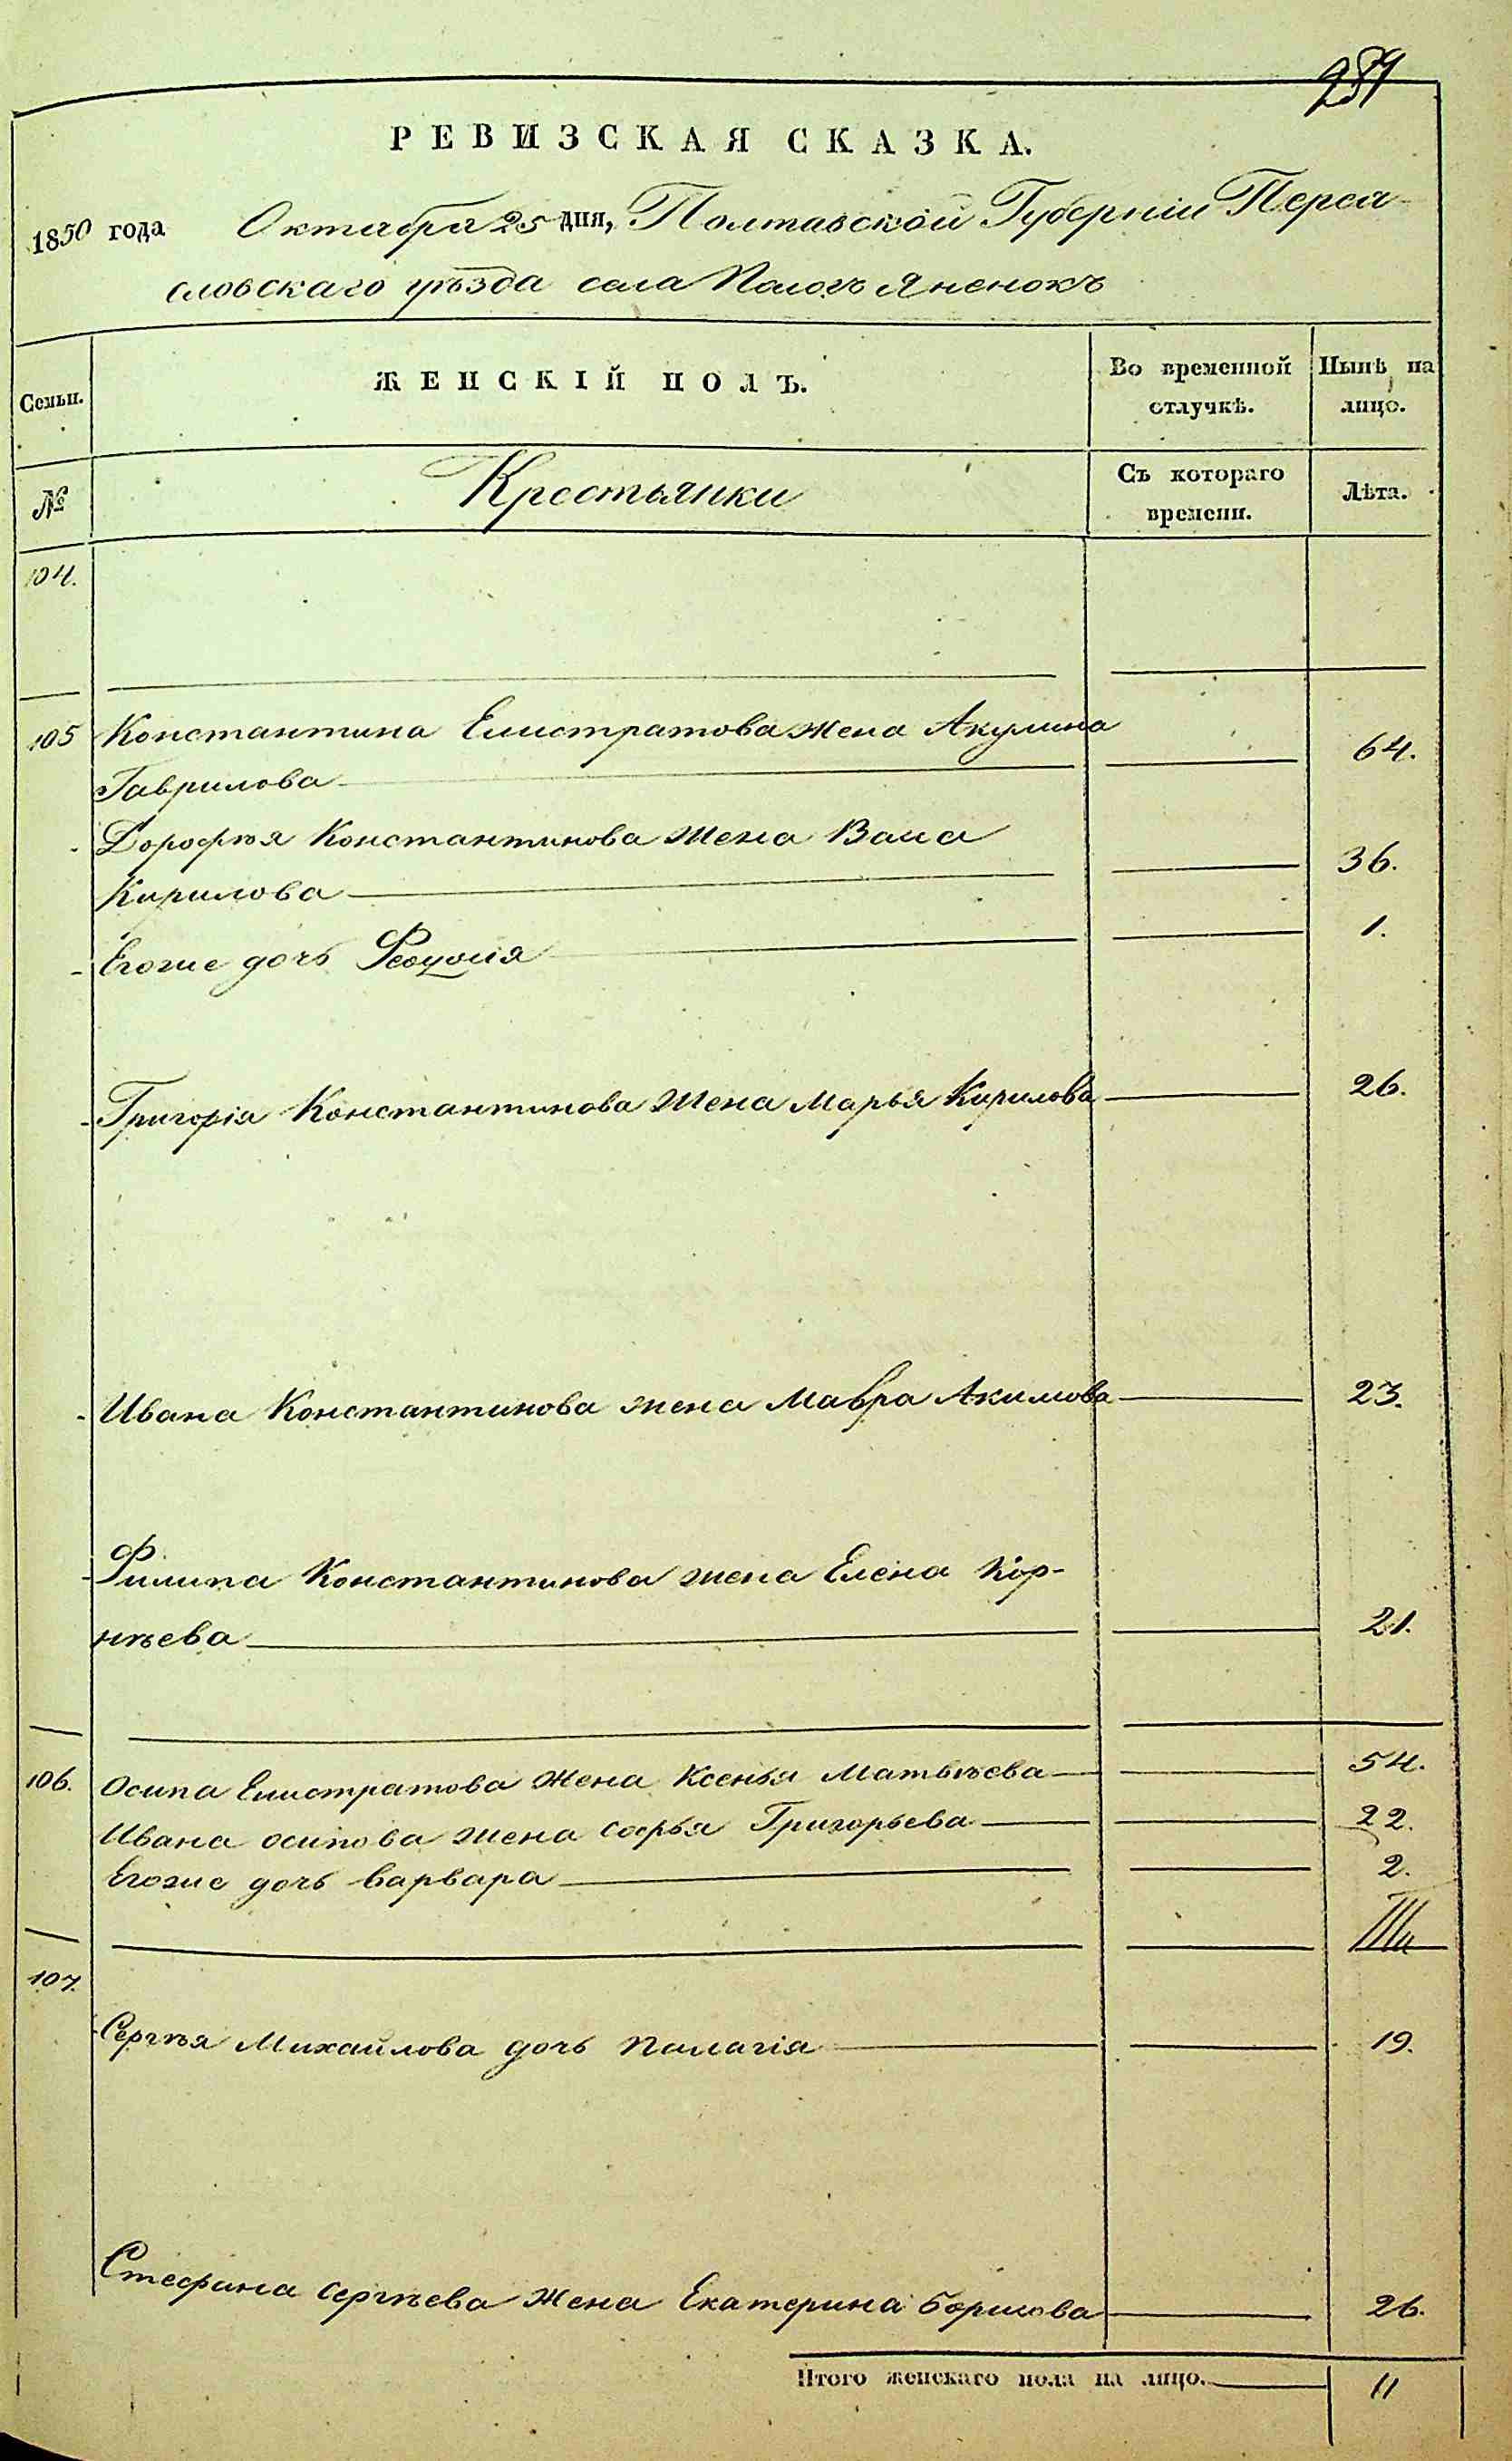 289
РЕВИЗСКАЯ СКАЗКА.
1850 года Октября 25 дня, Полтавской Губерніи Перея-
словскаго уѣзда села Пологъ Яненокъ
Семьи. ЖЕНСКІЙ ПОЛЪ. Во временной отлучкѣ. Нынѣ на лицо.
№ Крестьянки Съ котораго времени. Лѣта.
104.
105 Константина Елистратова жена Акулина
Гаврилова 64.
Дорофѣя Константинова жена Васа
Кирилова 36.
Егоже дочь 1.
Григорія Константинова жена Марья Кирилова 26.
Ивана Константинова жена Мавра Акимова 23.
Филипа Константинова жена Елена Кор-
нѣева 21.
106. Осипа Елистратова жена Ксенья Матвѣева 54.
Ивана осипова жена софья Григорьева 22.
Егоже дочь варвара 2.
107.
Сергѣя Михайлова дочь палагія 19.
Стефана сергѣева жена Екатерина борисова 26.
Итого женскаго пола на лицо. 11